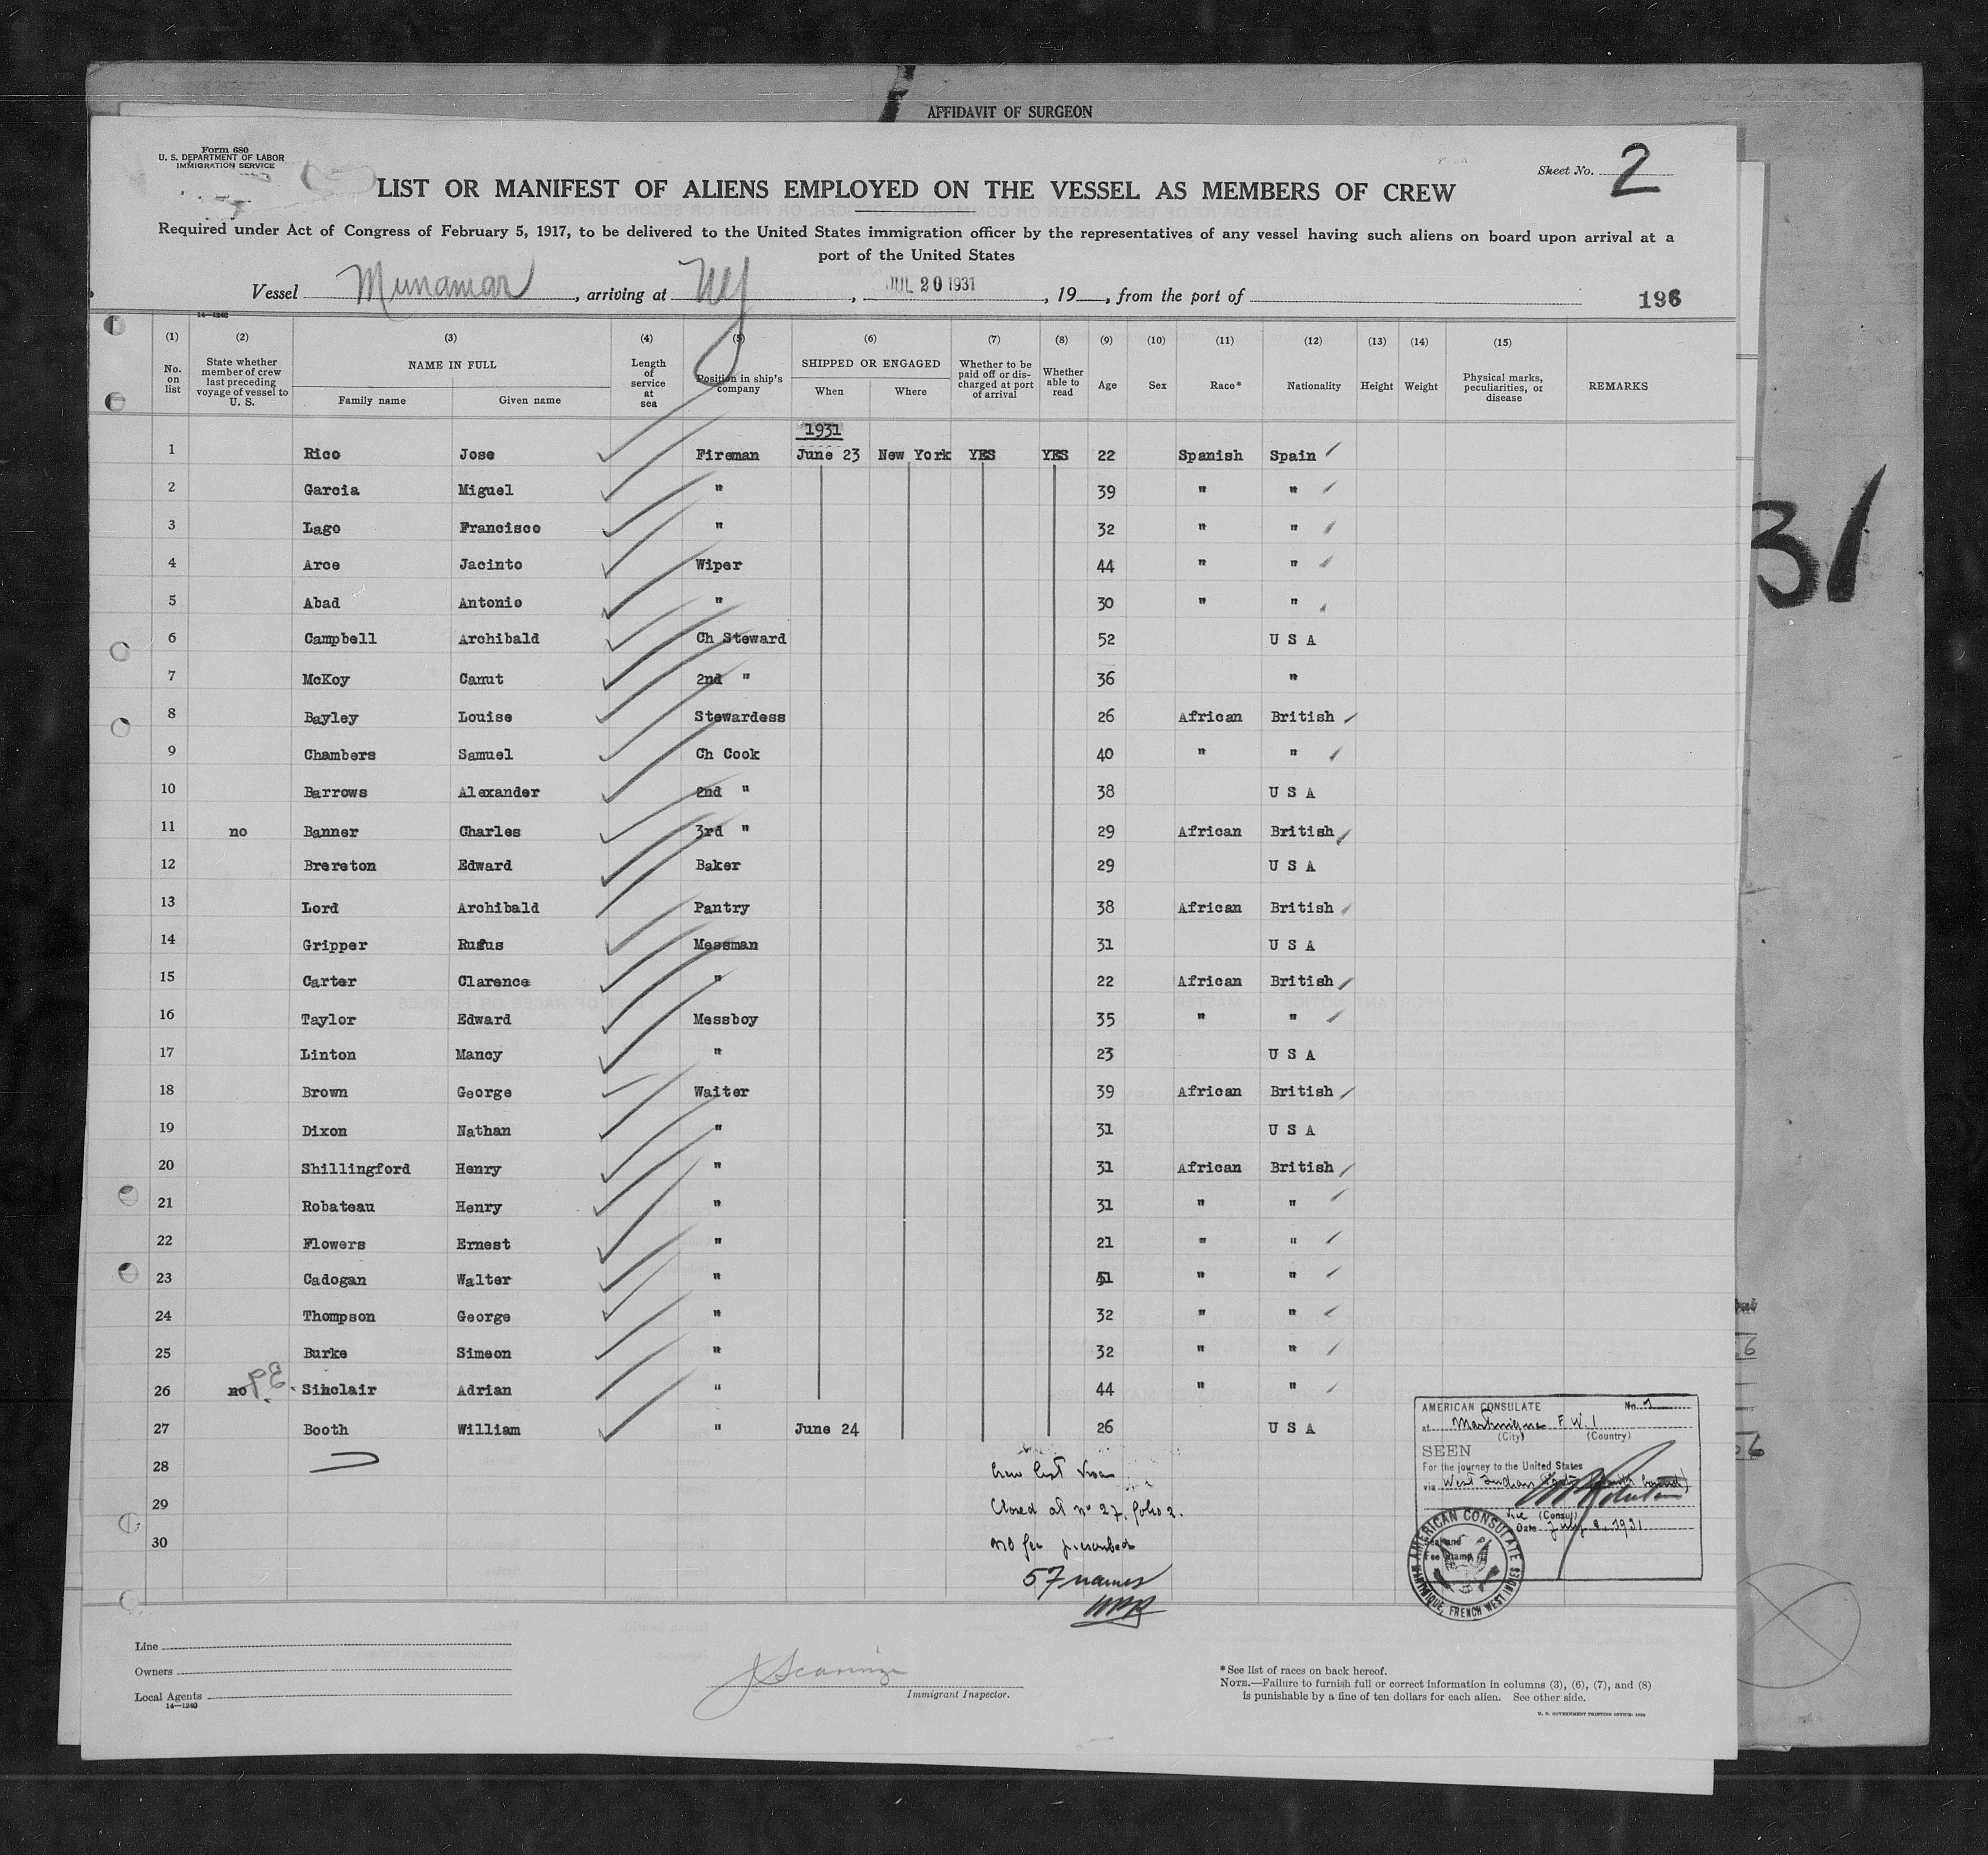 AFFIDAVIT OF SURGEON
Form 680
U. S. DEPARTMENT OF LABOR
IMMIGRATION SERVICE
Sheet No. 2
LIST OR MANIFEST OF ALIENS EMPLOYED ON THE VESSEL AS MEMBERS OF CREW
Required under Act of Congress of February 5, 1917, to be delivered to the United States immigration officer by the representatives of any vessel having such aliens on board upon arrival at a
port of the United States
Vessel Munamar, arriving at NY, JUL 20 1931, 19, from the port of
196
14—1240
(1) (2) (3) (4) (5) (6) (7) (8) (9) (10) (11) (12) (13) (14) (15)
No. on list
State whether member of crew last preceding voyage of vessel to U. S.
NAME IN FULL
Family name Given name
Length of service at sea
Position in ship's company
SHIPPED OR ENGAGED
When Where
Whether to be paid off or discharged at port of arrival
Whether able to read
Age Sex Race* Nationality Height Weight
Physical marks, peculiarities, or disease
REMARKS
1931
1 Rico Jose Fireman June 23 New York YES YES 22 Spanish Spain
2 Garcia Miguel " 39 " "
3 Lago Francisco " 32 " "
4 Arce Jacinto Wiper 44 " "
5 Abad Antonio " 30 " "
6 Campbell Archibald Ch Steward 52 U S A
7 McKoy Canut 2nd " 36 "
8 Bayley Louise Stewardess 26 African British
9 Chambers Samuel Ch Cook 40 " "
10 Barrows Alexander 2nd " 38 U S A
11 no Banner Charles 3rd " 29 African British
12 Brereton Edward Baker 29 U S A
13 Lord Archibald Pantry 38 African British
14 Gripper Rufus Messman 31 U S A
15 Carter Clarence " 22 African British
16 Taylor Edward Messboy 35 " "
17 Linton Mancy " 23 U S A
18 Brown George Waiter 39 African British
19 Dixon Nathan " 31 U S A
20 Shillingford Henry " 31 African British
21 Robateau Henry " 31 " "
22 Flowers Ernest " 21 " "
23 Cadogan Walter " " "
24 Thompson George " 32 " "
25 Burke Simeon " 32 " "
26 no Sinclair Adrian " 44 " "
27 Booth William " June 24 26 U S A
28
29
30
Crew list visa
Closed at No 27, folio 2.
No fee prescribed
57 names
AMERICAN CONSULATE No. 1
at Martinique F. W. I
(City) (Country)
SEEN
For the journey to the United States
via West Indian
Vice (Consul)
Date July 8, 1931
Seal and
Fee Stamp
AMERICAN CONSULATE
MARTINIQUE, FRENCH WEST INDIES
Line
Owners
Local Agents
14—1240
Immigrant Inspector.
*See list of races on back hereof.
NOTE.—Failure to furnish full or correct information in columns (3), (6), (7), and (8)
is punishable by a fine of ten dollars for each alien. See other side.
U. S. GOVERNMENT PRINTING OFFICE: 1930
31